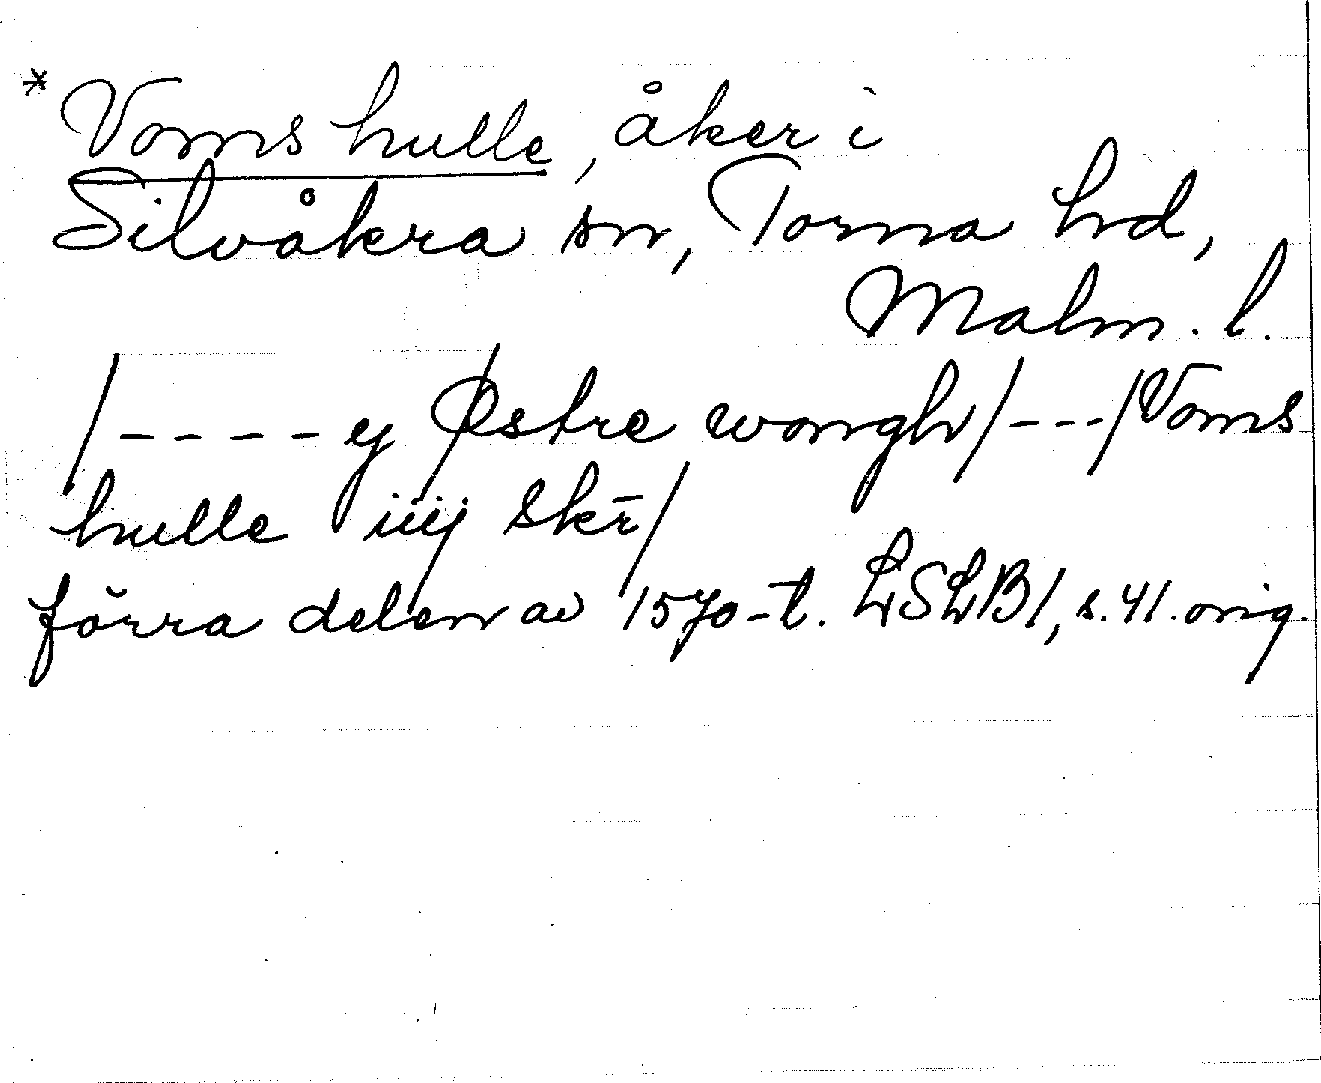 *Voms hulle, åker i
Silvåkra sn, Torna hd,
Malm. l.
/---- y Østre wongh/---/Voms
hulle iiij skr̄/
förra delen av 1570-t. LSLB1, s.41. orig.